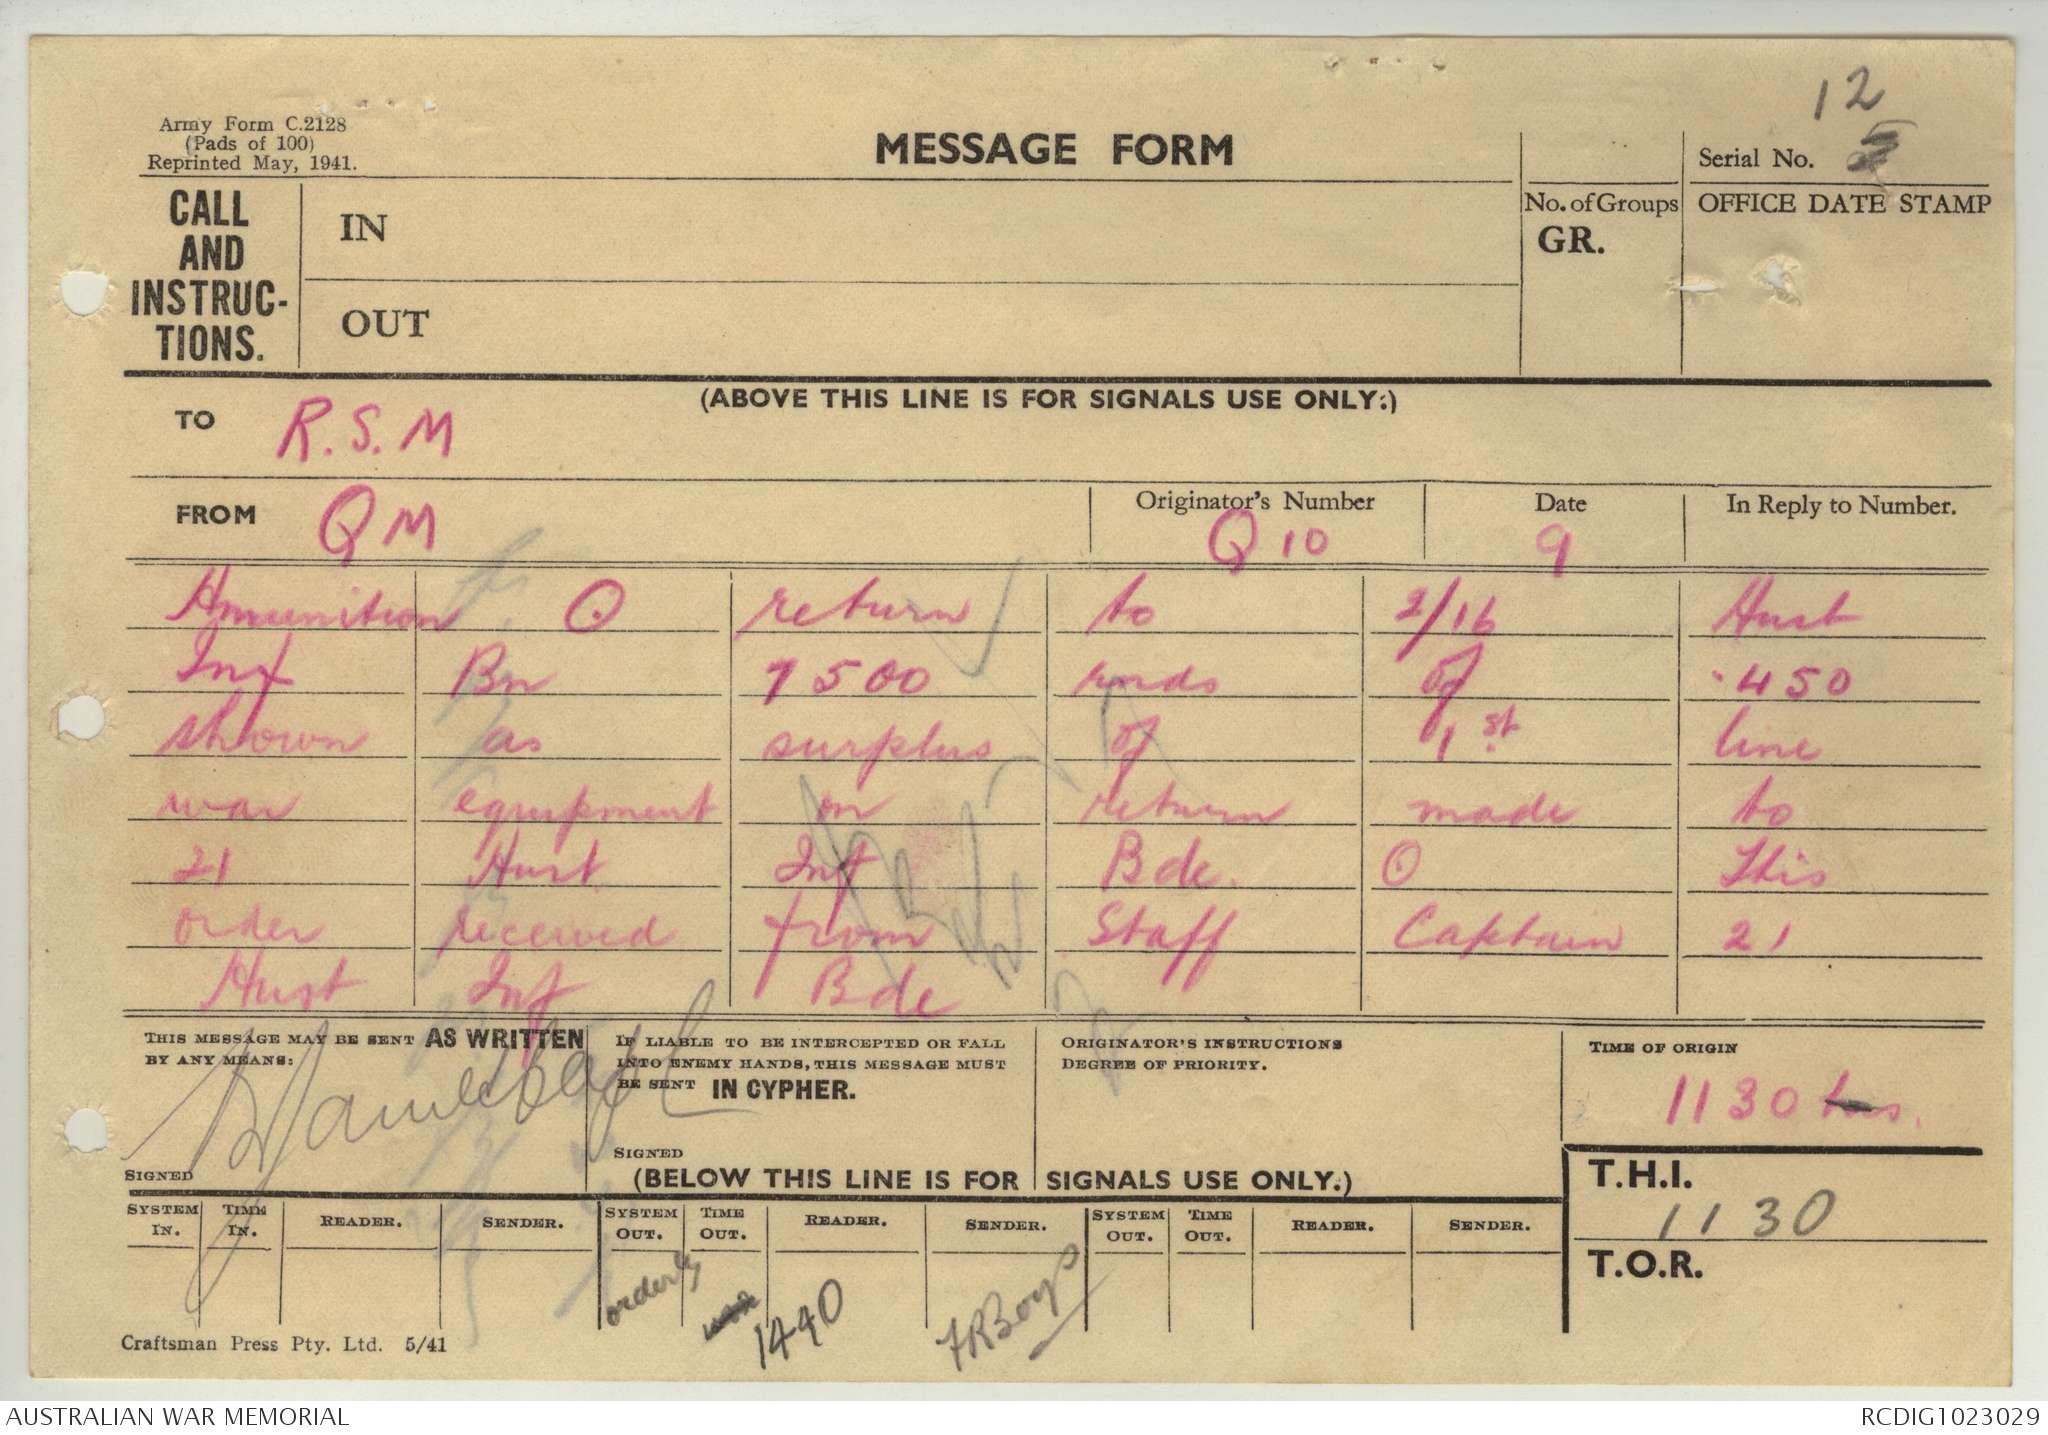 Army Form C.2128
(Pads of 100)
Reprinted May, 1941.
MESSAGE FORM
12
Serial No.
CALL AND INSTRUC-TIONS.
IN
OUT
No. of Groups
GR.
OFFICE DATE STAMP
(ABOVE THIS LINE IS FOR SIGNALS USE ONLY.)
TO R.S.M
FROM QM
Originator's Number Q 10
Date 9
In Reply to Number.
Ammunition O return to 2/16 Aust
Inf Bn 7500 rnds of .450
shown as surplus of 1st line
war equipment on return made to
21 Aust. Inf Bde. O This
order received from Staff Captain 21
Aust Inf Bde
THIS MESSAGE MAY BE SENT AS WRITTEN
BY ANY MEANS:
SIGNED
IF LIABLE TO BE INTERCEPTED OR FALL
INTO ENEMY HANDS, THIS MESSAGE MUST
BE SENT IN CYPHER.
SIGNED
ORIGINATOR'S INSTRUCTIONS
DEGREE OF PRIORITY.
TIME OF ORIGIN
1130 hrs.
(BELOW THIS LINE IS FOR SIGNALS USE ONLY.)
T.H.I.
1130
T.O.R.
SYSTEM IN. TIME IN. READER. SENDER. SYSTEM OUT. TIME OUT. READER. SENDER. SYSTEM OUT. TIME OUT. READER. SENDER.
orderly 1440 FRBoys
Craftsman Press Pty. Ltd. 5/41
AUSTRALIAN WAR MEMORIAL
RCDIG1023029